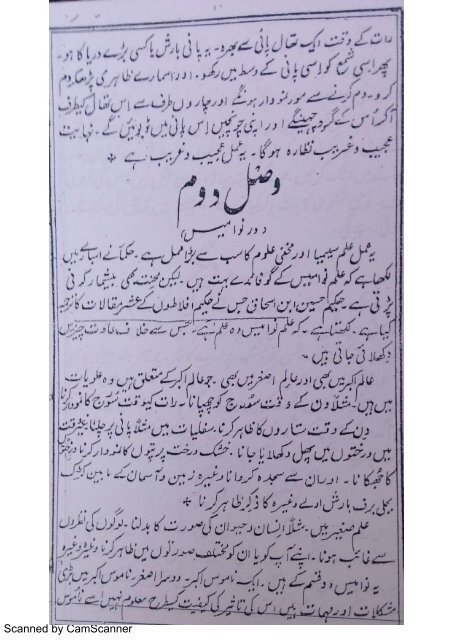 رات کے وقت ایک تھال پانی سے بھرو۔ یہ پانی بارش یا کسی بڑے دریا کا ہو۔
پھر اسی شمع کو اسی پانی کے وسط میں رکھو۔ اور اسمارے ظاہری پڑھکر دم
کرو۔ دم کرنے سے مور نمودار ہونگے اور چاروں طرف سے اس تھال کیطرف
آکر اس کے گرد اور اپنی چونچیں اس پانی میں ڈبوئیں گے۔ نہایت
عجیب و غریب نظارہ ہوگا۔ یہ عمل عجیب و غریب ہے
وصل دوم
در نوامیس
یہ عمل علم سیمیا اور مخفی علوم کا سب سے بڑا عمل ہے۔ حکمائے اسبارے میں
لکھا ہے کہ علم نوامیس کے گو فائدے بہت ہیں۔ لیکن محنت بھی بیشمار کرنی
پڑتی ہے۔ حکیم حسین ابن اسحاق جس نے حکیم افلاطون کے عشر مقالات کا ترجمہ
کیا ہے۔ لکھتا ہے۔ کہ علم نوامیس وہ علم ہے۔ جس سے خلاف عادت چیزیں
دکھلائی جاتی ہیں
عالم اکبر میں بھی اور عالم اصغر میں بھی۔ جو عالم اکبر کے متعلق ہیں وہ علویات
میں ہیں۔ مثلاً دن کے وقت سورج کو چھپانا۔ رات کیوقت سورج کا نمودار کرنا
دن کے وقت ستاروں کا ظاہر کرنا۔ سفلیات میں مثلاً پانی پر چلنا بیوقت
میں درختوں میں پھل دکھلایا جانا۔ خشک درخت پر پتوں کا نمودار کرنا درختوں
کا جھکانا۔ اور ان سے سجدہ کروانا وغیرہ زمین و آسمان کے مابین کڑک
بجلی برف بارش اولے وغیرہ کا ظاہر کرنا
علم صغیر ہیں۔ مثلاً انسان و حیوان کی صورت کا بدلنا۔ لوگوں کی نظروں
سے غائب ہونا۔ اپنے آپ کو یا ان کو مختلف صورتوں میں ظاہر کرنا وغیرہ وغیرہ
یہ نوامیس دو قسم کے ہیں۔ ایک ناموس اکبر۔ دوسرا اصغر۔ ناموس اکبر میں بڑی
مشکلات اور ہیں اس کی تاثیر کی کیفیت کیطرح معلوم نہیں اسے ناموس
Scanned by CamScanner